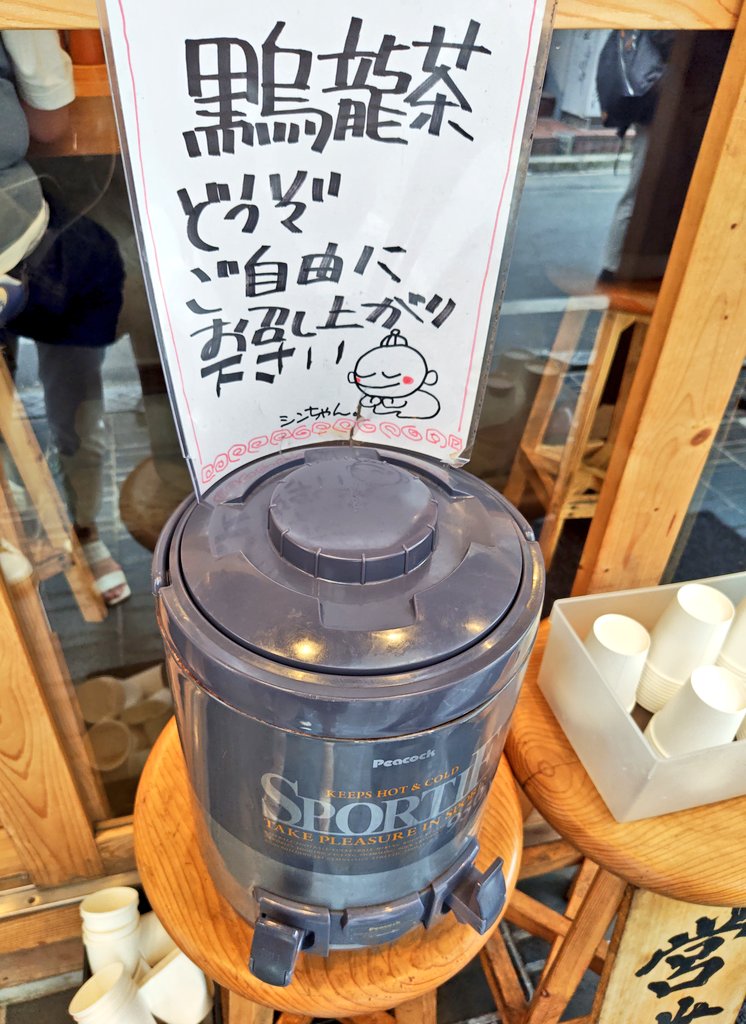 黒烏龍茶
どうぞ
ご自由に
お召し上がり
下さい
シンちゃん。
Peacock
KEEPS HOT & COLD
SPORTIE
TAKE PLEASURE IN SPORT
Peacock
営